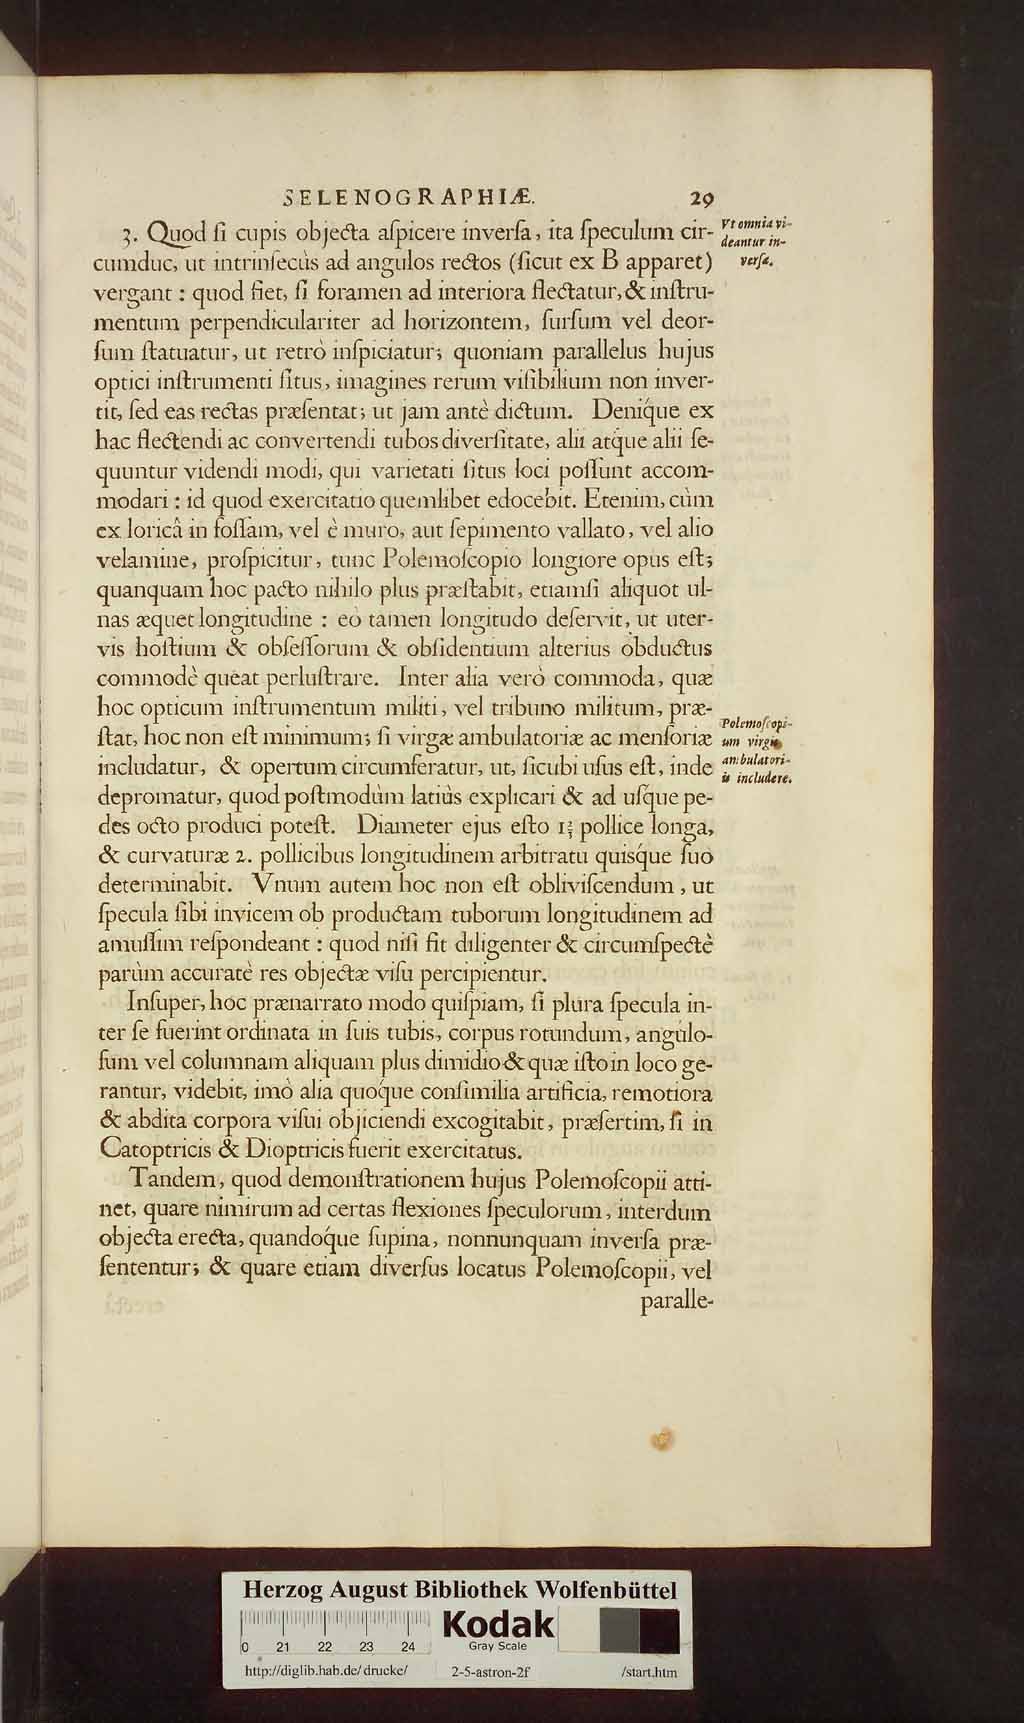 SELENOGRAPHIÆ. 29
3. Quod ſi cupis objecta aſpicere inverſa, ita ſpeculum cir-
cumduc, ut intrinſecùs ad angulos rectos (ſicut ex B apparet)
vergant: quod fiet, ſi foramen ad interiora flectatur, & inſtru-
mentum perpendiculariter ad horizontem, ſurſum vel deor-
ſum ſtatuatur, ut retrò inſpiciatur; quoniam parallelus hujus
optici inſtrumenti ſitus, imagines rerum viſibilium non inver-
tit, ſed eas rectas præſentat; ut jam antè dictum. Deniq́ue ex
hac flectendi ac convertendi tubos diverſitate, alii atq́ue alii ſe-
quuntur videndi modi, qui varietati ſitus loci poſſunt accom-
modari: id quod exercitatio quemlibet edocebit. Etenim, cùm
ex loricâ in foſſam, vel è muro, aut ſepimento vallato, vel alio
velamine, proſpicitur, tunc Polemoſcopio longiore opus eſt;
quanquam hoc pacto nihilo plus præſtabit, etiamſi aliquot ul-
nas æquet longitudine: eò tamen longitudo deſervit, ut uter-
vis hoſtium & obſeſſorum & obſidentium alterius obductus
commodè queat perluſtrare. Inter alia verò commoda, quæ
hoc opticum inſtrumentum militi, vel tribuno militum, præ-
ſtat, hoc non eſt minimum; ſi virgæ ambulatoriæ ac menſoriæ
includatur, & opertum circumferatur, ut, ſicubi uſus eſt, inde
depromatur, quod poſtmodùm latiùs explicari & ad uſq́ue pe-
des octo produci poteſt. Diameter ejus eſto 1⅔ pollice longa,
& curvaturæ 2. pollicibus longitudinem arbitratu quisq́ue ſuo
determinabit. Vnum autem hoc non eſt obliviſcendum, ut
ſpecula ſibi invicem ob productam tuborum longitudinem ad
amuſſim reſpondeant: quod niſi fit diligenter & circumſpectè
parùm accuratè res objectæ viſu percipientur.
Inſuper, hoc prænarrato modo quiſpiam, ſi plura ſpecula in-
ter ſe fuerint ordinata in ſuis tubis, corpus rotundum, angulo-
ſum vel columnam aliquam plus dimidio & quæ iſto in loco ge-
rantur, videbit, imò alia quoq́ue conſimilia artificia, remotiora
& abdita corpora viſui objiciendi excogitabit, præſertim, ſi in
Catoptricis & Dioptricis fuerit exercitatus.
Tandem, quod demonſtrationem hujus Polemoſcopii atti-
net, quare nimirum ad certas flexiones ſpeculorum, interdum
objecta erecta, quandoq́ue ſupina, nonnunquam inverſa præ-
ſententur; & quare etiam diverſus locatus Polemoſcopii, vel
paralle-
Vt omnia vi-
deantur in-
verſa.
Polemoſcopi-
um virgis
ambulatori-
is includere.
Herzog August Bibliothek Wolfenbüttel
Kodak
Gray Scale
0 21 22 23 24
http://diglib.hab.de/drucke/ 2-5-astron-2f /start.htm